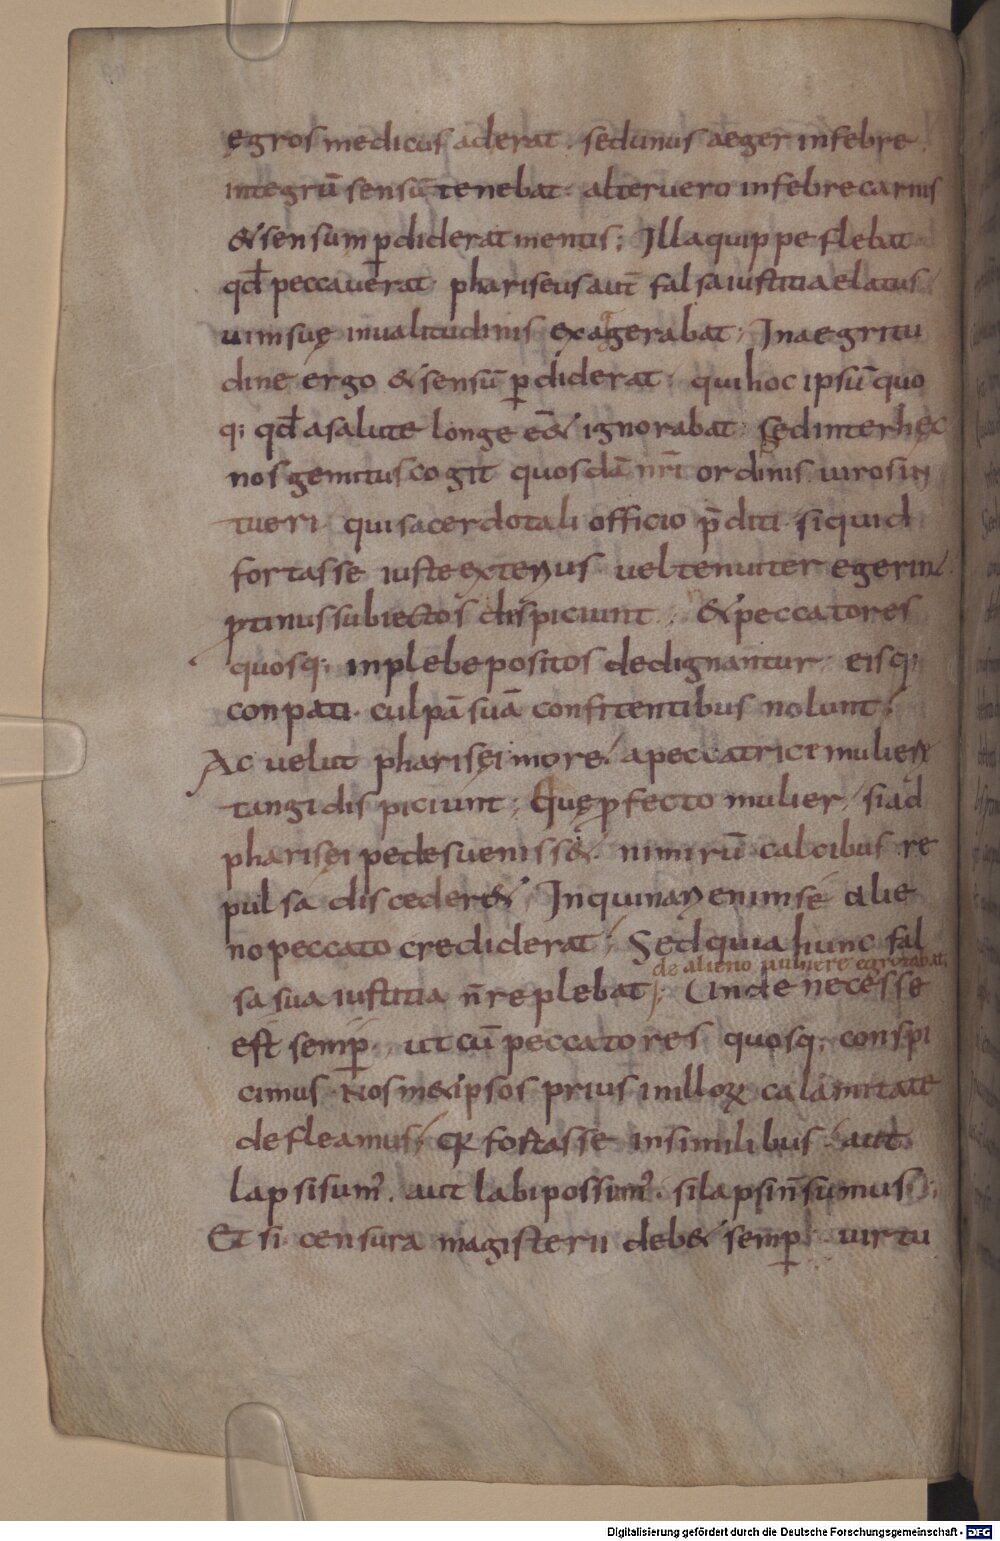 ęgros medicus aderat. sed unus aeger in febre.
integrū sensū tenebat. alter uero in febre carnis
& sensum p̱diderat mentis; Illa quippe flebat
qđ peccauerat. phariseus aut̄ falsa iustitia elatus
uim suę inualitudinis exagerabat; In aegritu
dine ergo & sensū p̱diderat. qui hoc ipsū quo
q; qđ a salute longe eē& ignorabat; sed inter hęc
nos gemitus cogit quosdā nr̄i ordinis uiros in
tueri. qui sacerdotali officio p̄diti. si quid
fortasse iuste extenus uel tenuiter egerint
ꝓtinus subiectos dispiciunt; & peccatores
quosq; in plebe positos dedignantur. eisq;
conpati. culpā suā confitentibus nolunt;
Ac uelut pharisęi more a peccatrici muliere
tangi dispiciunt; Quę ꝓfecto mulier, si ad
pharisęi pedes uenisset&. nimirū calcibus re
pulsa disceder&; Inquinari enim se alie
no peccato crediderat; Sed quia hunc fal
de alieno uulnere egrotabat.
sa sua iustitia n̄ replebat; Unde necesse
est semp̱. ut cū peccatores quosq; conspi
cimus. Nosmet&ipsos prius in illoꝝ calamitate
defleamus; qꝛ fortasse in similibus. aut
lapsi sum'. aut labi possum'. si lapsi n̄ sumus;
Et si censura magisterii deb& semp̱. uirtu
Digitalisierung gefördert durch die Deutsche Forschungsgemeinschaft - DFG